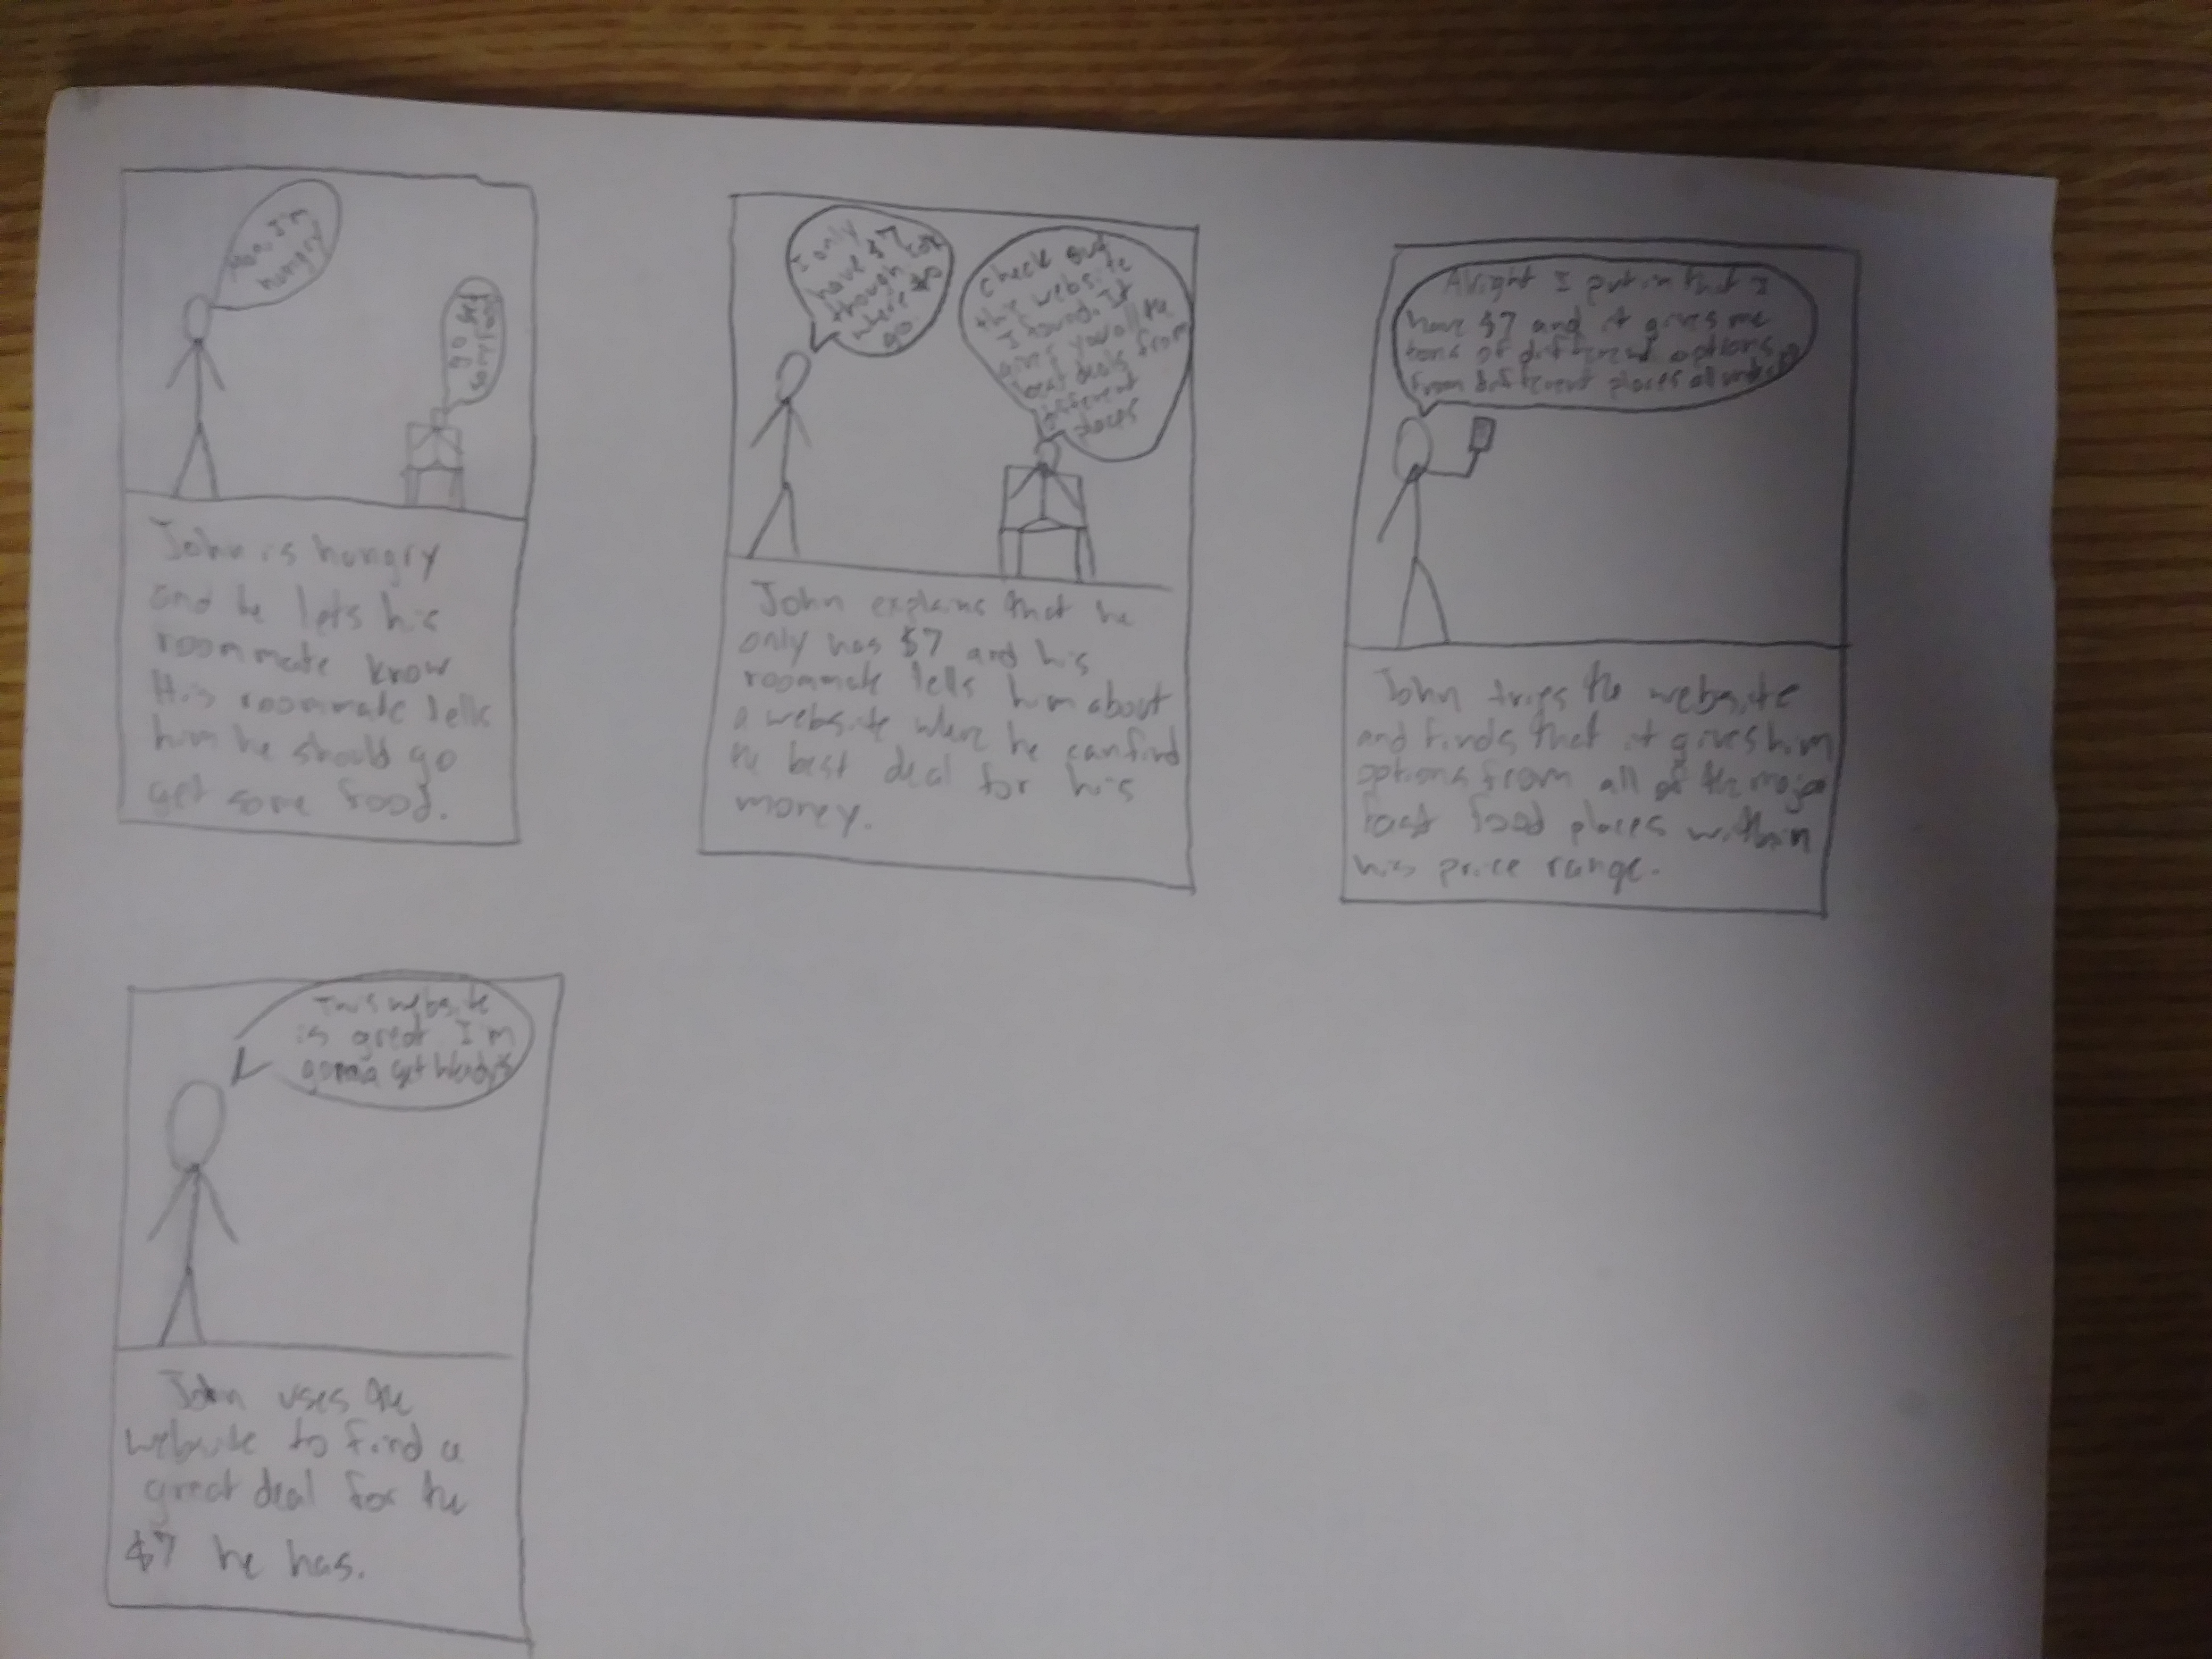 Man, I'm
hungry
go get
some food
John is hungry
and he lets his
roommate know
His roommate tells
him he should go
get some food.
I only
have $7
though
where to
go
check out
this website
I found. It
gives you all the
best deals from
different
places
John explains that he
only has $7 and his
roommate tells him about
a website where he can find
the best deal for his
money.
Alright I put in that I
have $7 and it gives me
tons of different options
from different places all under
John tries the website
and finds that it gives him
options from all of the major
fast food places within
his price range.
This website
is great I'm
gonna get Wendy's
John uses the
website to find a
great deal for the
$7 he has.